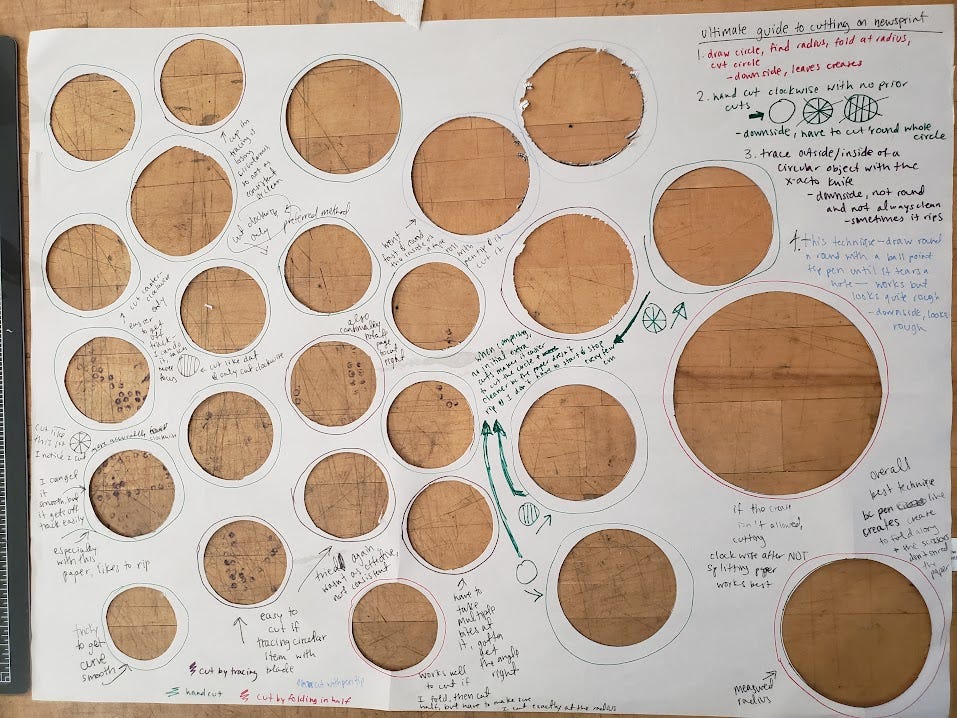 ultimate guide to cutting on newsprint
1. draw circle, find radius, fold at radius,
cut circle
- downside, leaves creases
2. hand cut clockwise with no prior
cuts
- downside, have to cut 'round whole
circle
3. trace outside/inside of a
circular object with the
x-acto knife
- downside, not round
and not always clean
- sometimes it rips
4. this technique - draw round
n round with a ball point
pen until it tears a
hole - works but
looks quite rough
- downside, looks
rough
cup im
tracing is
losing
circularness
so not as
consistent
or clean
cut clockwise
only
preferred method
went
round
the inside of
a tape
roll
with
pen tip &
cut it
↑ cut counter-
clockwise
only
easier
to get
off
track
I can do
it, takes
more
focus
← cut like dat
& only cut clockwise
also
continually
rotate
page
toward
when comparing,
no initial extra
cuts makes it easier
to cut the circle & more
cleaner bc the paper doesn't
rip & I don't have to start & stop
cut like
this for
I notice I cut more accurately
clockwise
I can get
it
smooth, but
it gets off
track easily
especially
with this
paper, likes to rip
tricky
to get
curve
smooth
easy to
cut if
tracing circular
item with
blade
tried again
wasn't as effective,
not consistent
have to
take
multiple
bites at
it, gotta
get
the angle
right
works well
to cut if
I fold, then cut
half, but have to make sure
I cut exactly at the radius
if the crease
isn't allowed,
cutting
clockwise after NOT
splitting paper
works best
overall
best technique
bc pen like
creates crease
to fold along
+ the scissors
don't shred
the
paper
measured
radius
cut by tracing
cut with pen tip
hand cut
cut by folding in half